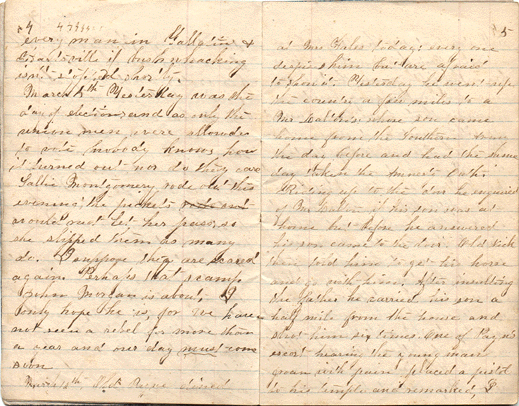 4
every man in Gallatin &
Hartsville if bushwhacking
isn't stopped shortly.
March 5th Yesterday was the
day of elections and as only the
union men were allowed
to vote, nobody knows how
it turned out nor do they care
Sallie Montgomery rode out this
evening; the pickets
would not let her pass, so
she slipped them as many
do. I suppose they are scared
again. Perhaps that scamp
John Morgan is about. I
only hope he is, for we have
not seen a rebel for more than
a year and our day must come
soon
March
5
at Mr Hales today; every one
despises him but are afraid
to show it. Yesterday he went up
the country a few miles to a
Mr Dalton's whose son came
home from the Southern Army
the day before and had the same
day taken the Amnesty Oath.
Riding up to the door he inquired
of Mr Dalton if his son was at
home but before he answered
his son came to the door. Old Nick
then told him to get his horse
and go with him. After insulting
the father he carried his son a
half mile from the house and
shot him six times. One of Payne's
escort hearing the young man
groan with pain placed a pistol
to his temple and remarked, I